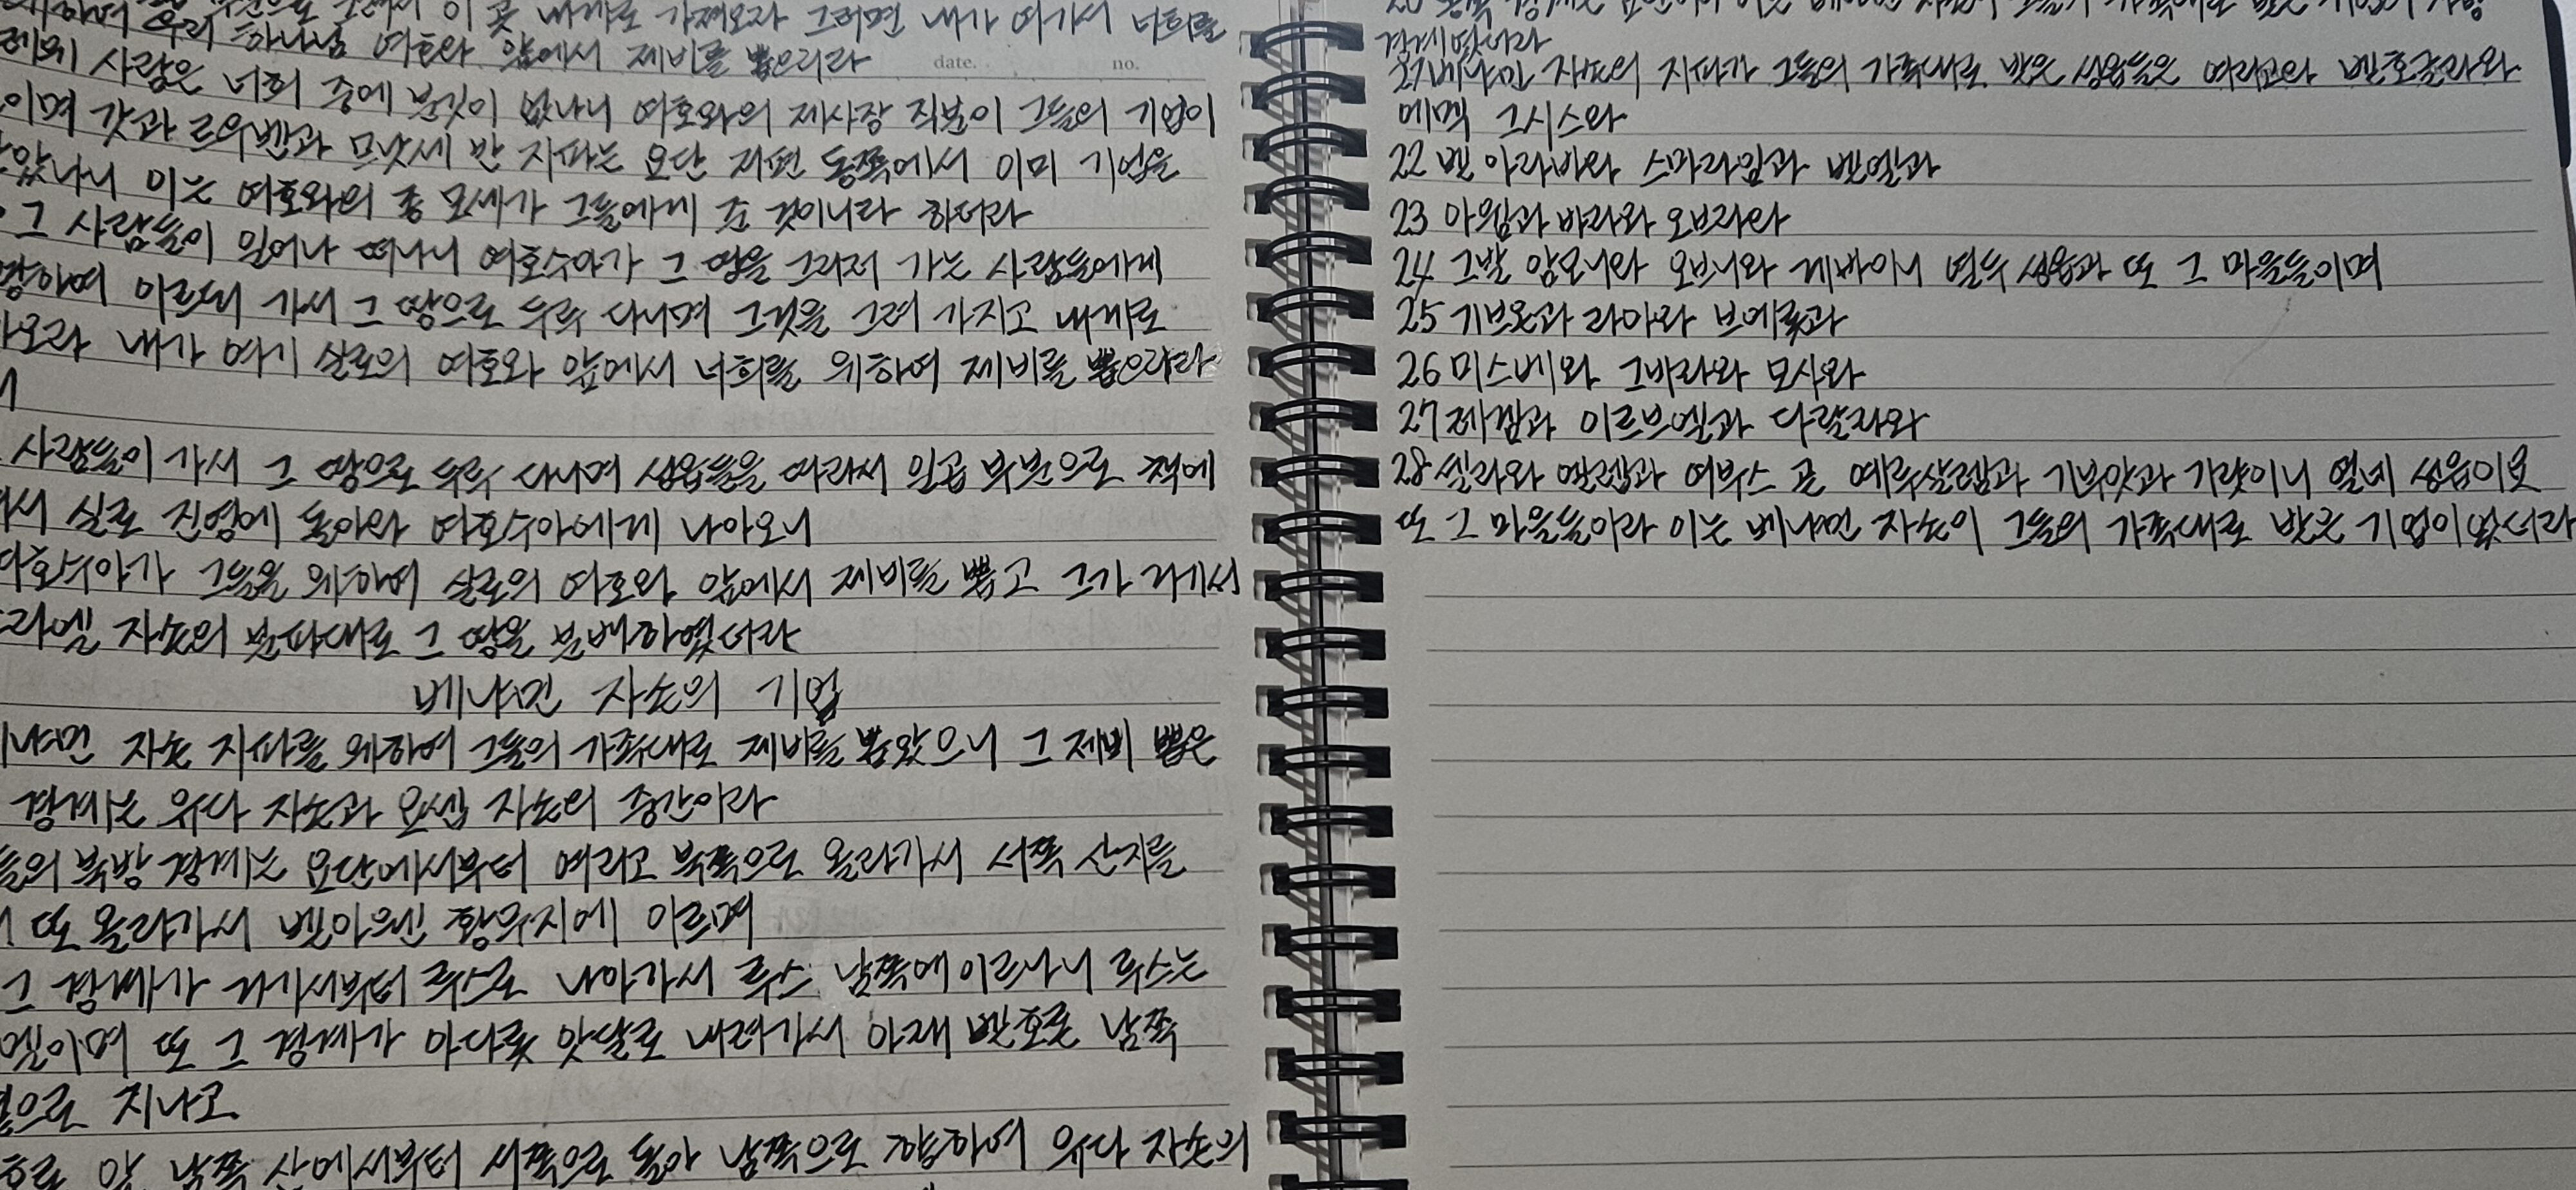 이 곳 내게로 가져오라 그러면 내가 여기서 너희를
우리 하나님 여호와 앞에서 제비를 뽑으리라
date. no.
사람은 너희 중에 분깃이 없나니 여호와의 제사장 직분이 그들의 기업이
이며 갓과 르우벤과 므낫세 반 지파는 요단 저편 동쪽에서 이미 기업을
았나니 이는 여호와의 종 모세가 그들에게 준 것이니라 하더라
그 사람들이 일어나 떠나니 여호수아가 그 땅을 그리러 가는 사람들에게
하여 이르되 가서 그 땅으로 두루 다니며 그것을 그려 가지고 내게로
오라 내가 여기 실로의 여호와 앞에서 너희를 위하여 제비를 뽑으리라
사람들이 가서 그 땅으로 두루 다니며 성읍들을 따라서 일곱 부분으로 책에
서 실로 진영에 돌아와 여호수아에게 나아오니
여호수아가 그들을 위하여 실로의 여호와 앞에서 제비를 뽑고 그가 거기서
라엘 자손의 분파대로 그 땅을 분배하였더라
베냐민 자손의 기업
냐민 자손 지파를 위하여 그들의 가족대로 제비를 뽑았으니 그 제비 뽑은
경계는 유다 자손과 요셉 자손의 중간이라
들의 북방 경계는 요단에서부터 여리고 북쪽으로 올라가서 서쪽 산지를
또 올라가서 벧아웬 황무지에 이르며
그 경계가 거기서부터 루스로 나아가서 루스 남쪽에 이르나니 루스는
엘이며 또 그 경계가 아다롯 앗달로 내려가서 아래 벧호론 남쪽
으로 지나고
호론 앞 남쪽 산에서부터 서쪽으로 돌아 남쪽으로 향하여 유다 자손의
경계였더라
21 베냐민 자손의 지파가 그들의 가족대로 받은 성읍들은 여리고와 벧호글라와
에멕 그시스와
22 벧 아라바와 스마라임과 벧엘과
23 아윔과 바라와 오브라와
24 그발 암모니와 오브니와 게바이니 열두 성읍과 또 그 마을들이며
25 기브온과 라마와 브에롯과
26 미스베와 그비라와 모사와
27 레겜과 이르브엘과 다랄라와
28 셀라와 엘렙과 여부스 곧 예루살렘과 기부앗과 기럇이니 열네 성읍이요
또 그 마을들이라 이는 베냐민 자손이 그들의 가족대로 받은 기업이었더라